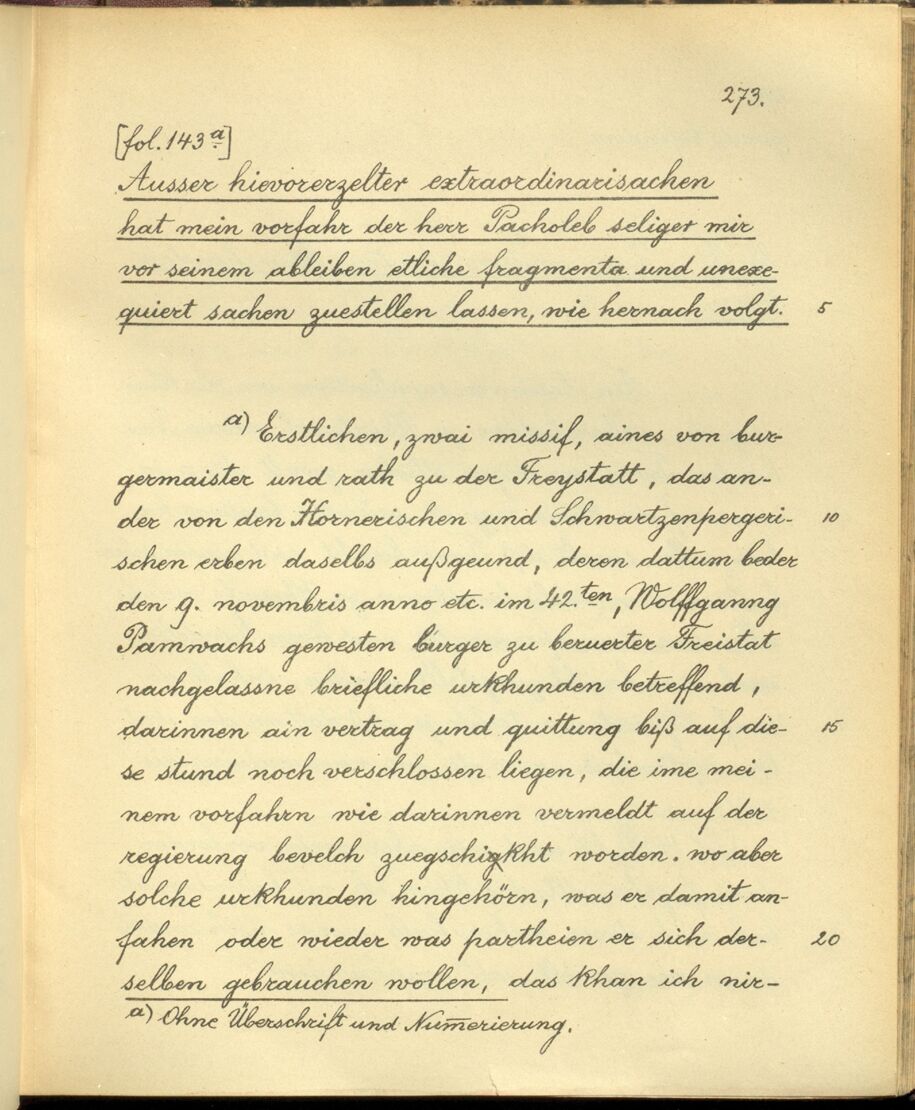 273.
[fol. 143 a]
Ausser hievorerzelter extraordinarisachen
hat mein vorfahr der herr Pacholeb seliger mir
vor seinem ableiben etliche fragmenta und unexe-
quiert sachen zuestellen lassen, wie hernach volgt. 5
a) Erstlichen, zwai missif, aines von bur-
germaister und rath zu der Freystatt, das an-
der von den Hornerischen und Schwartzenpergeri- 10
schen erben daselbs außgeund, deren dattum beder
den 9. novembris anno etc. im 42.ten, Wolffganng
Pamwachs gewesten burger zu beruerter Freistat
nachgelassne briefliche urkhunden betreffend,
darinnen ain vertrag und quittung biß auf die- 15
se stund noch verschlossen liegen, die ime mei-
nem vorfahrn wie darinnen vermeldt auf der
regierung bevelch zuegschikht worden. wo aber
solche urkhunden hingehörn, was er damit an-
fahen oder wieder was partheien er sich der- 20
selben gebrauchen wollen, das khan ich nir-
a) Ohne Überschrift und Num̅erierung.